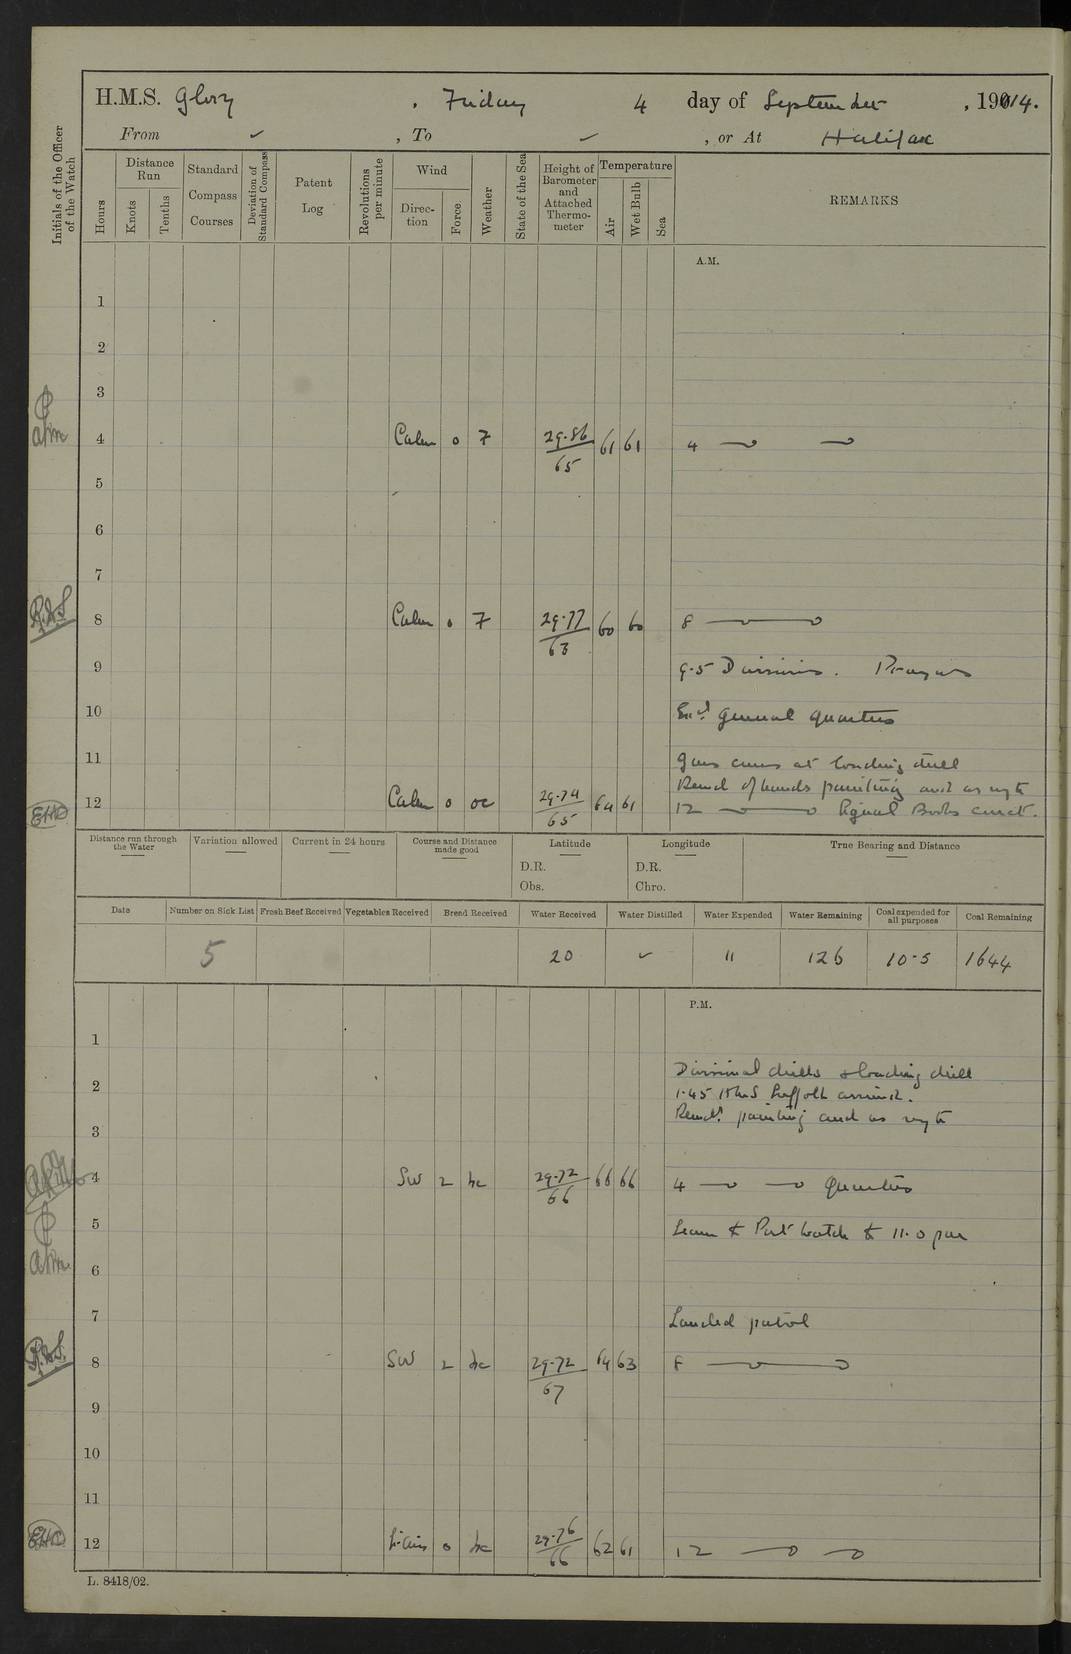 H.M.S. Glory , Friday 4 day of September , 1914.
From ✓ , To ✓ , or At Halifax
Initials of the Officer of the Watch
Hours
Distance Run
Knots
Tenths
Standard Compass Courses
Deviation of Standard Compass
Patent Log
Revolutions per minute
Wind
Direction
Force
Weather
State of the Sea
Height of Barometer and Attached Thermometer
Temperature
Air
Wet Bulb
Sea
REMARKS
A.M.
1
2
3
4 Calm 0 F 29.86/65 61 61 4
5
6
7
8 Calm 0 F 29.77/63 60 60 8
9 9.5 Divisions. Prayers
10 General Quarters
11 Guns crews at loading drill
Remd of hands painting and as reqte
12 Calm 0 oc 29.74/65 64 61 12 Signal Books corrct.
Distance run through the Water
Variation allowed
Current in 24 hours
Course and Distance made good
Latitude
D.R.
Obs.
Longitude
D.R.
Chro.
True Bearing and Distance
Date
Number on Sick List
Fresh Beef Received
Vegetables Received
Bread Received
Water Received
Water Distilled
Water Expended
Water Remaining
Coal expended for all purposes
Coal Remaining
5 20 ✓ 11 126 10.5 1644
P.M.
1
Divisional drills & loading drill
2 1.45 HMS Suffolk arrived.
Remdr painting and as reqte
3
4 SW 2 bc 29.72/66 66 66 4 Quarters
5 Leave to Port Watch to 11.0 pm
6
7 Landed patrol
8 SW 2 bc 29.72/67 64 63 8
9
10
11
12 Lt airs 0 bc 29.76/66 62 61 12
L. 8418/02.